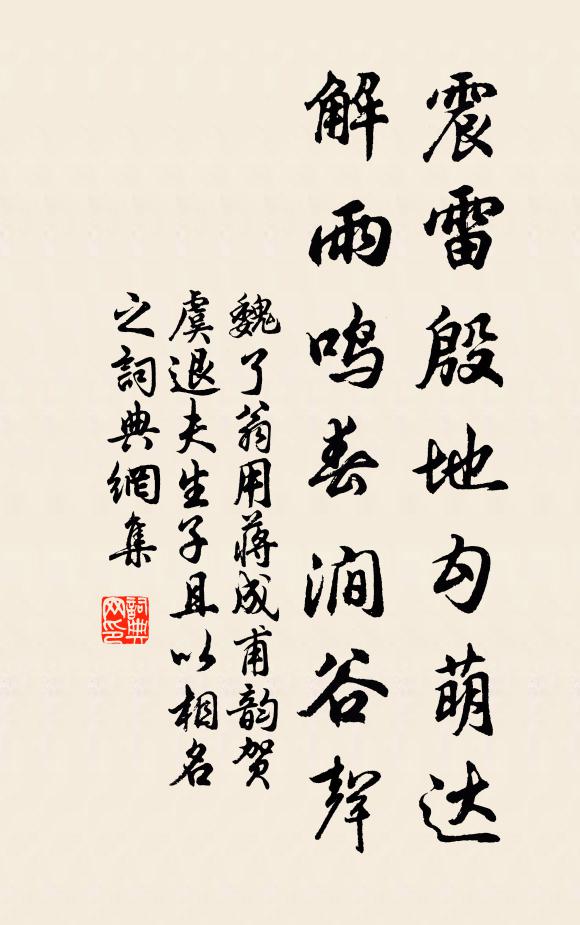 震雷殷地勾萌达
解雨鸣春涧谷聲
魏了翁用蒋成甫韵贺
虞退夫生子且以相名
之詞典網集
詞典网印